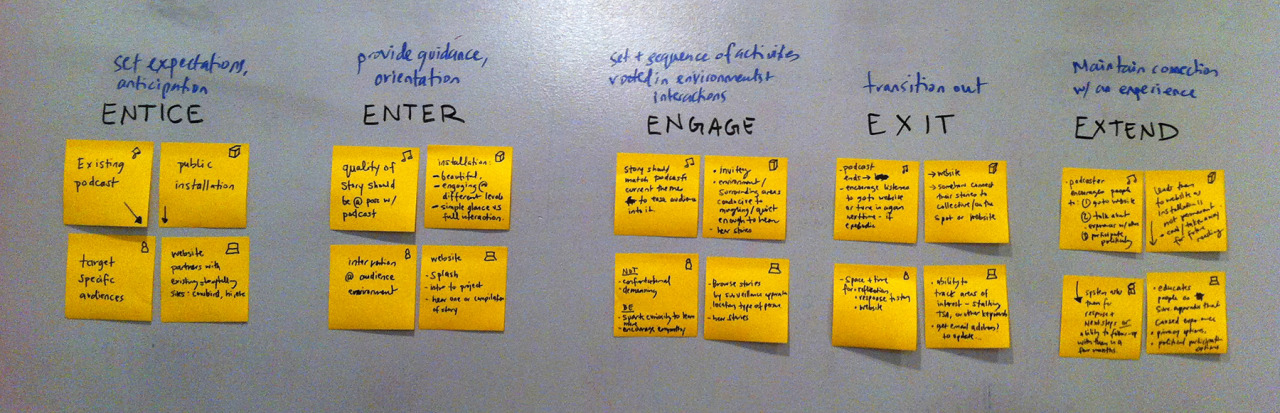 set expectations,
anticipation
ENTICE
Existing
podcast
public
installation
target
specific
audiences
website
partners with
existing, hopefully
provide guidance,
orientation
ENTER
quality of
story should
be @ par w/
podcast
installation:
- beautiful,
- engaging @
different levels
- simple glance vs
full interaction.
intervention
@ audience
environment
website
- Splash
- intro to project
- hear one or compilation
of story
set + sequence of activities
rooted in environment +
interactions
ENGAGE
Story should
match podcasts
current theme
to ease audience
into it.
• inviting
• environment/
surrounding areas
conducive to
mingling/quiet
enough to hear
- hear stories
NOT
- confrontational
- demanding
BE
- spark curiosity to learn
more
- encourage empathy
- Browse stories
by surveillance
location, type of person
- hear stories
transition out
EXIT
- podcast
ends →
- encourage listener
to go to website
or tune in again
next time - if
episodic
→ website
→ somehow connect
their stories to
collective/on the
spot or website
- Space + time
for reflection
• response to story
• website
• ability to
track areas of
interest - stalking,
TSA, or other keywords
• get email address
to update...
Maintain connection
w/ an experience
EXTEND
- podcaster
encourages people
to: ① go to website
② talk about
experiences w/ others
③ participate
politically
leads them
to website as
installation is
not permanent
• card/takeaway
for future
them for
response
Next steps OR
ability to follow-up
with them in a
few months.
• educates
people on
caused experience
• privacy options,
• political participation
options